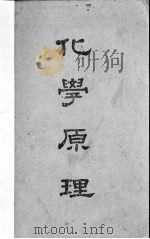 化
學
原
理
www.mtoou.info